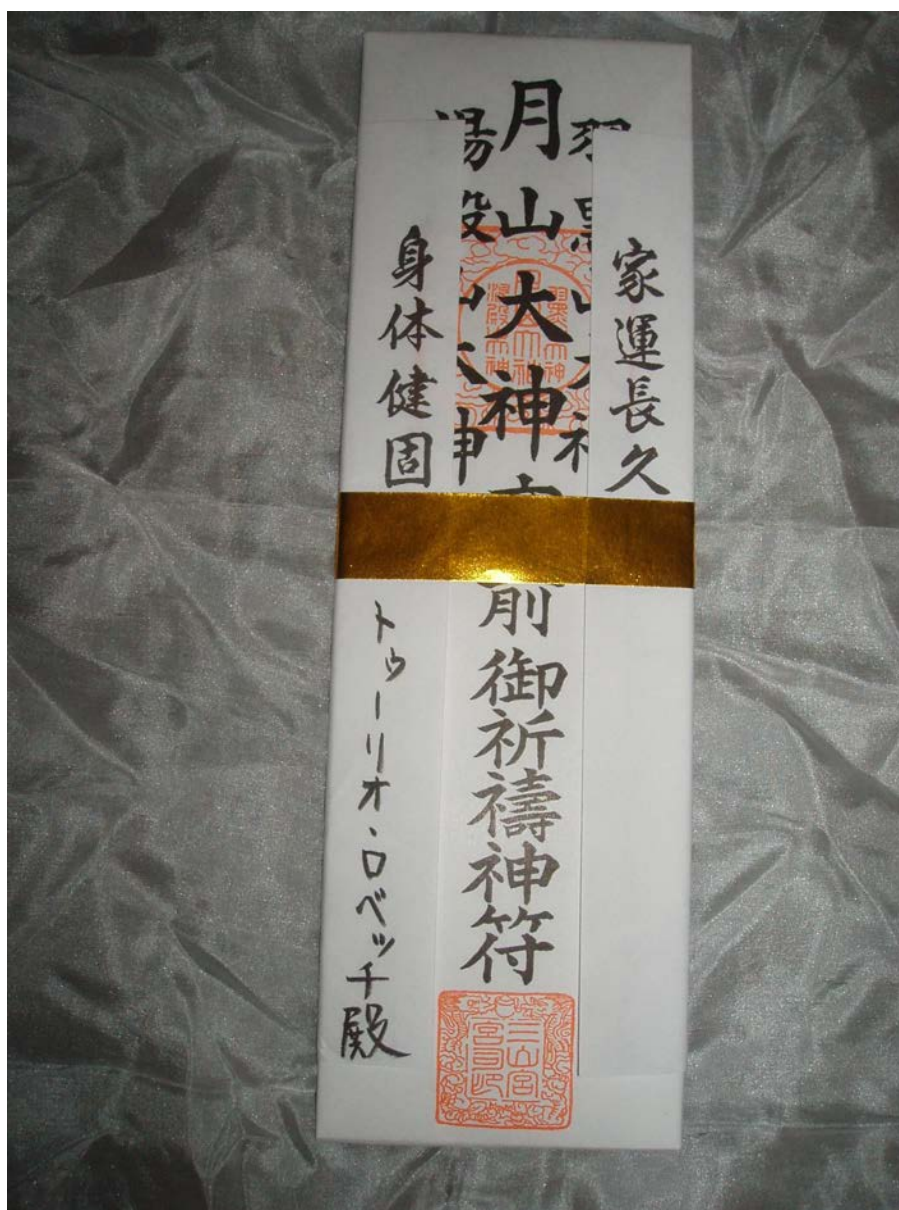 家運長久
月山大神
前御祈禱神符
身体健固
トゥーリオ・ロベッチ殿